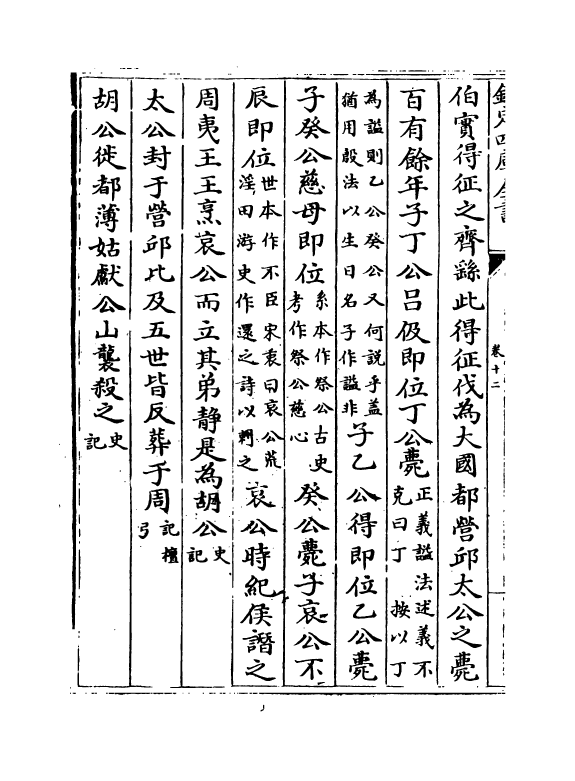 欽定四庫全書
卷十二
伯實得征之齊繇此得征伐為大國都營邱太公之薨
百有餘年子丁公呂伋即位丁公薨正義諡法述義不克曰丁 按以丁
為諡則乙公癸公又何說乎蓋猶用殷法以生日名子作諡非子乙公得即位乙公薨
子癸公慈母即位系本作祭公古史考作祭公慈心癸公薨子哀公不
辰即位世本作不臣宋衷曰哀公荒淫田游史作還之詩以刺之哀公時紀侯譖之
周夷王王烹哀公而立其弟静是為胡公史記
太公封于營邱比及五世皆反葬于周記檀弓
胡公徙都薄姑獻公山襲殺之史記